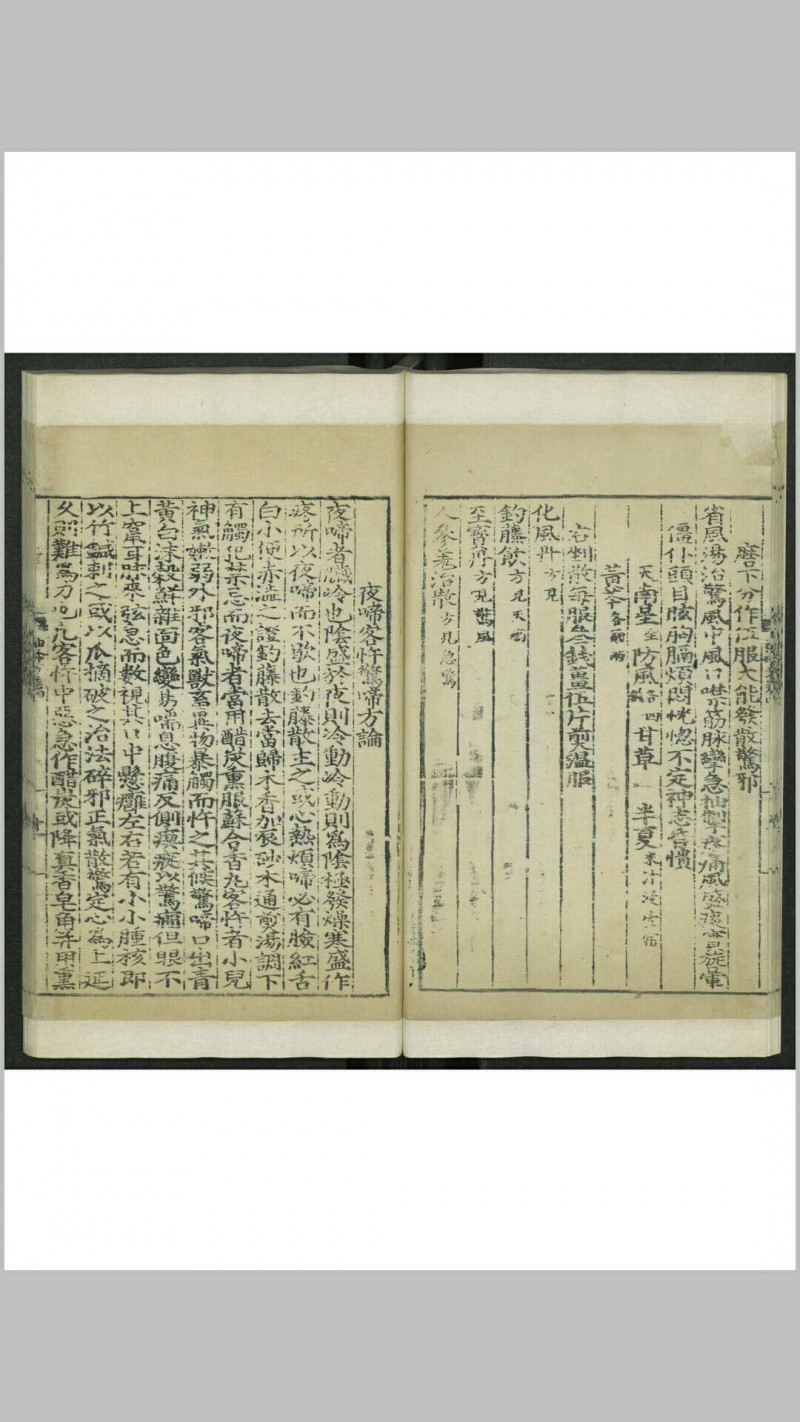 磨二下分作二服大能發散驚邪
省風湯治驚風中風口噤筋脉攣急抽掣疼痛風盛痰實旋暈
僵仆頭目眩胸膈煩悶恍惚不定神志昏憒
天南星 防風 四 甘草 半夏
黃芩
右剉散每服二錢薑伍片煎溫服
化風丹方見
釣藤飲方見天
至寶丹方見驚風
人參羗活散方見急驚
夜啼客忤驚啼方論
夜啼者臟冷也陰盛於夜則冷動冷動則爲陰極發燥寒盛作
疼所以夜啼而不歇也釣藤散主之或心熱煩啼必有臉紅舌
白小便赤澁之證釣藤散去當歸木香加辰砂木通煎湯調下
有觸犯禁忌而夜啼者當用醋炭熏服蘇合香丸客忤者小兒
神氣嫩弱外邪客氣獸畜異物暴觸而忤之其候驚啼口出青
黃白沫穀鮮雜面色變易喘息腹痛反側瘈瘲似驚癎但眼不
上竄耳脉來弦急而數視其口中懸癰左右若有小小腫核即
以竹鍼刺之或以爪摘破之治法碎邪正氣散驚定心爲上延
久則難爲力也凡客忤中惡急作醋炭或降真香皂角并用熏